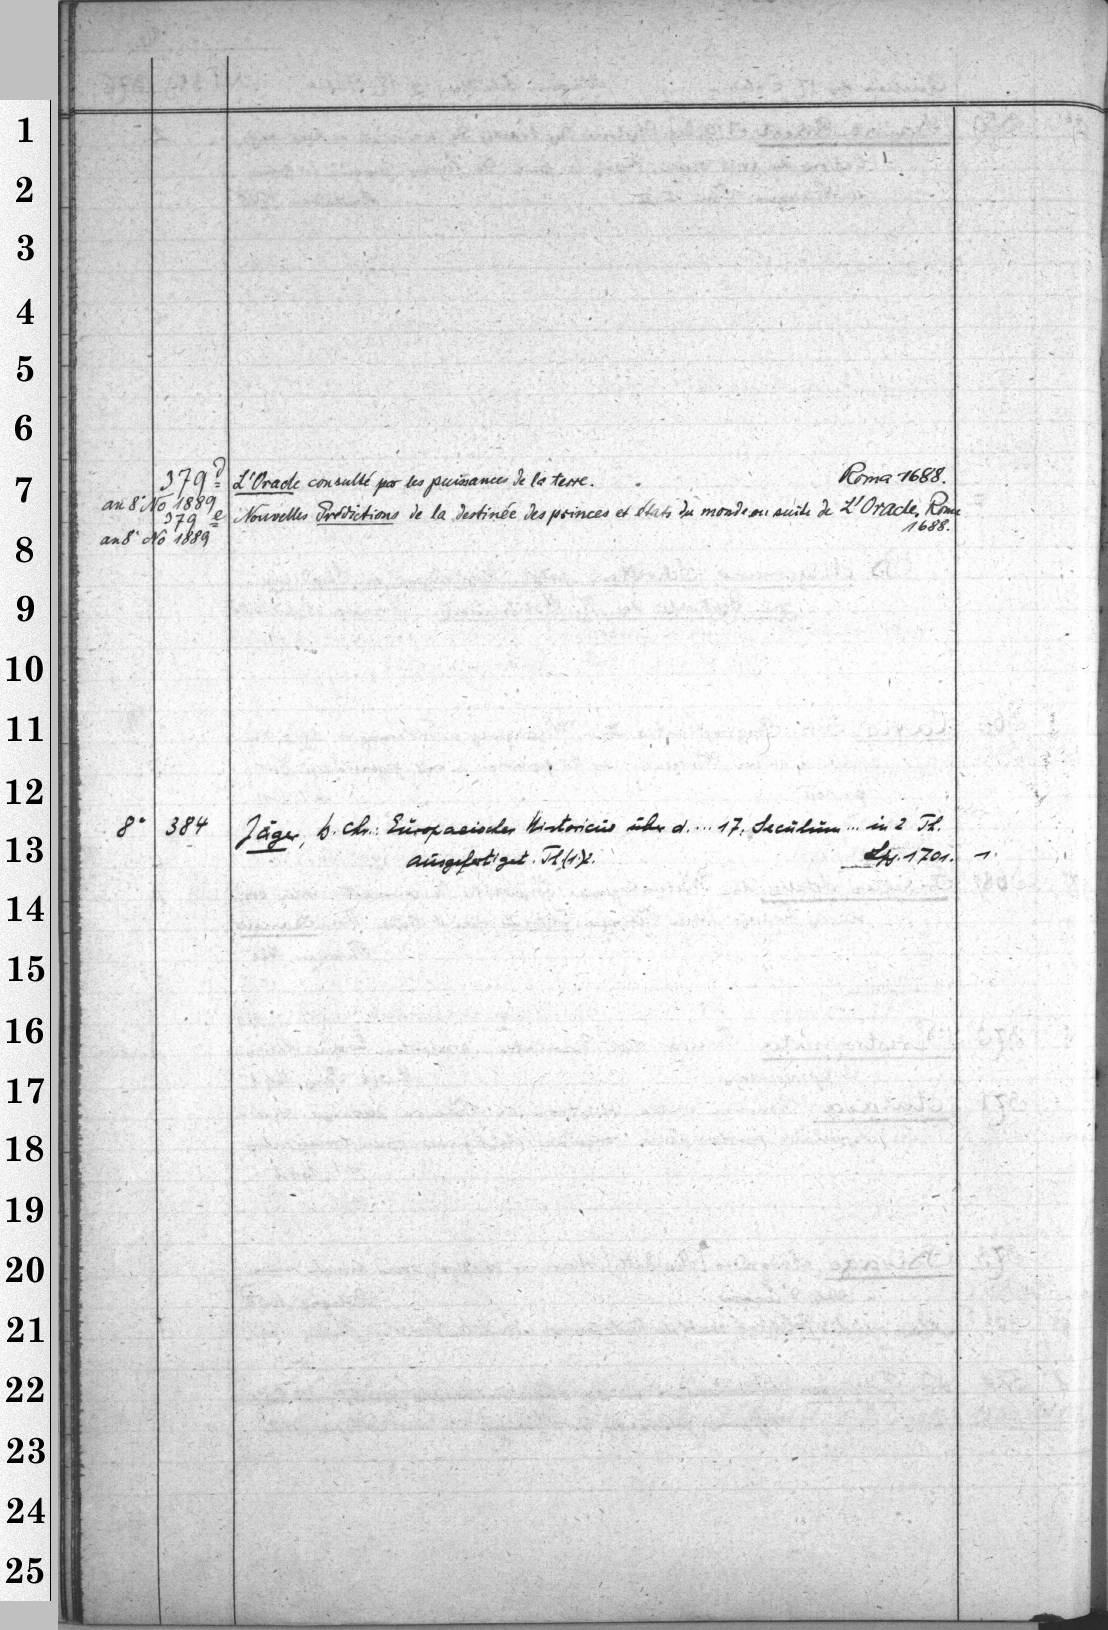 1
2
3
4
5
6
7
379d L'Oracle consulté par les puissances de la terre. Roma 1688.
an 8° No 1889
379e Nouvelles Prédictions de la destinée des princes et états du monde ou suite de L'Oracle, Rome
1688.
an 8° No 1889
8
9
10
11
12
8° 384 Jäger, b. Ch.: Europaeischer Historicus über d. ... 17. Seculum ... in 2 Th.
13
ausgefertiget. Th. (1) 2. Lpz. 1701. 1.
14
15
16
17
18
19
20
21
22
23
24
25